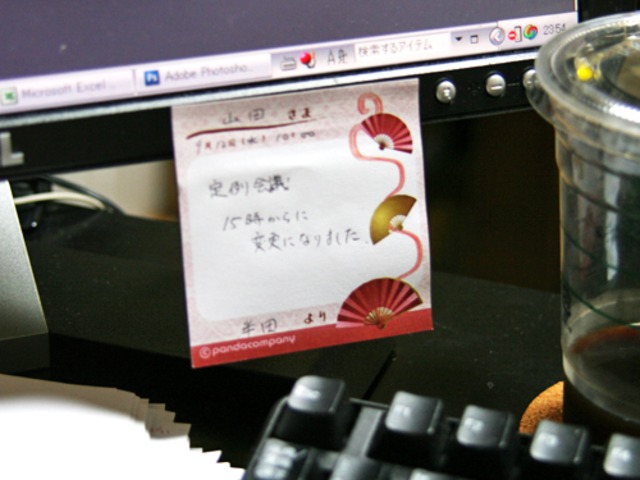 Microsoft Excel ...
Adobe Photosho...
A般
検索するアイテム
23:54
山田 さま
9月12日(水) 10:00
定例会議
15時からに
変更になりました。
半田 より
©pandacompany